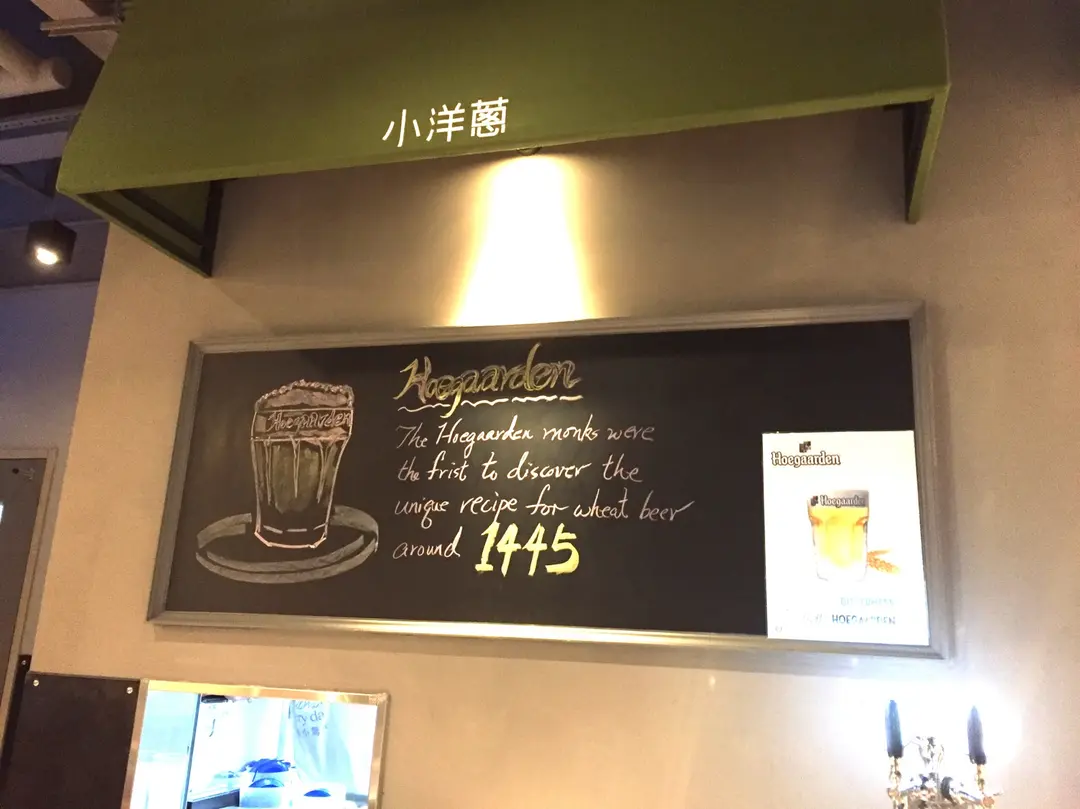 小洋蔥
Hoegaarden
Hoegaarden
The Hoegaarden monks were
the frist to discover the
unique recipe for wheat beer
around 1445
Hoegaarden
Hoegaarden
HOEGAARDEN